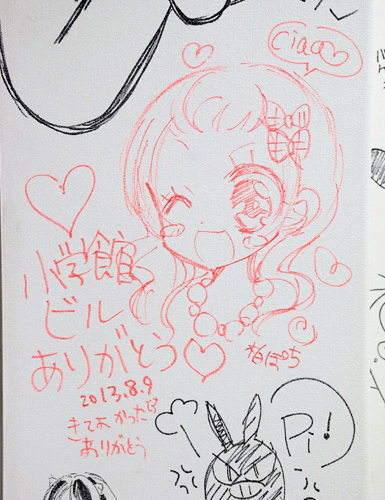 Ciao♡
小学館
ビル
ありがとう♡
柏ぽち
2013.8.9
きてよかったです
ありがとう
Pi!